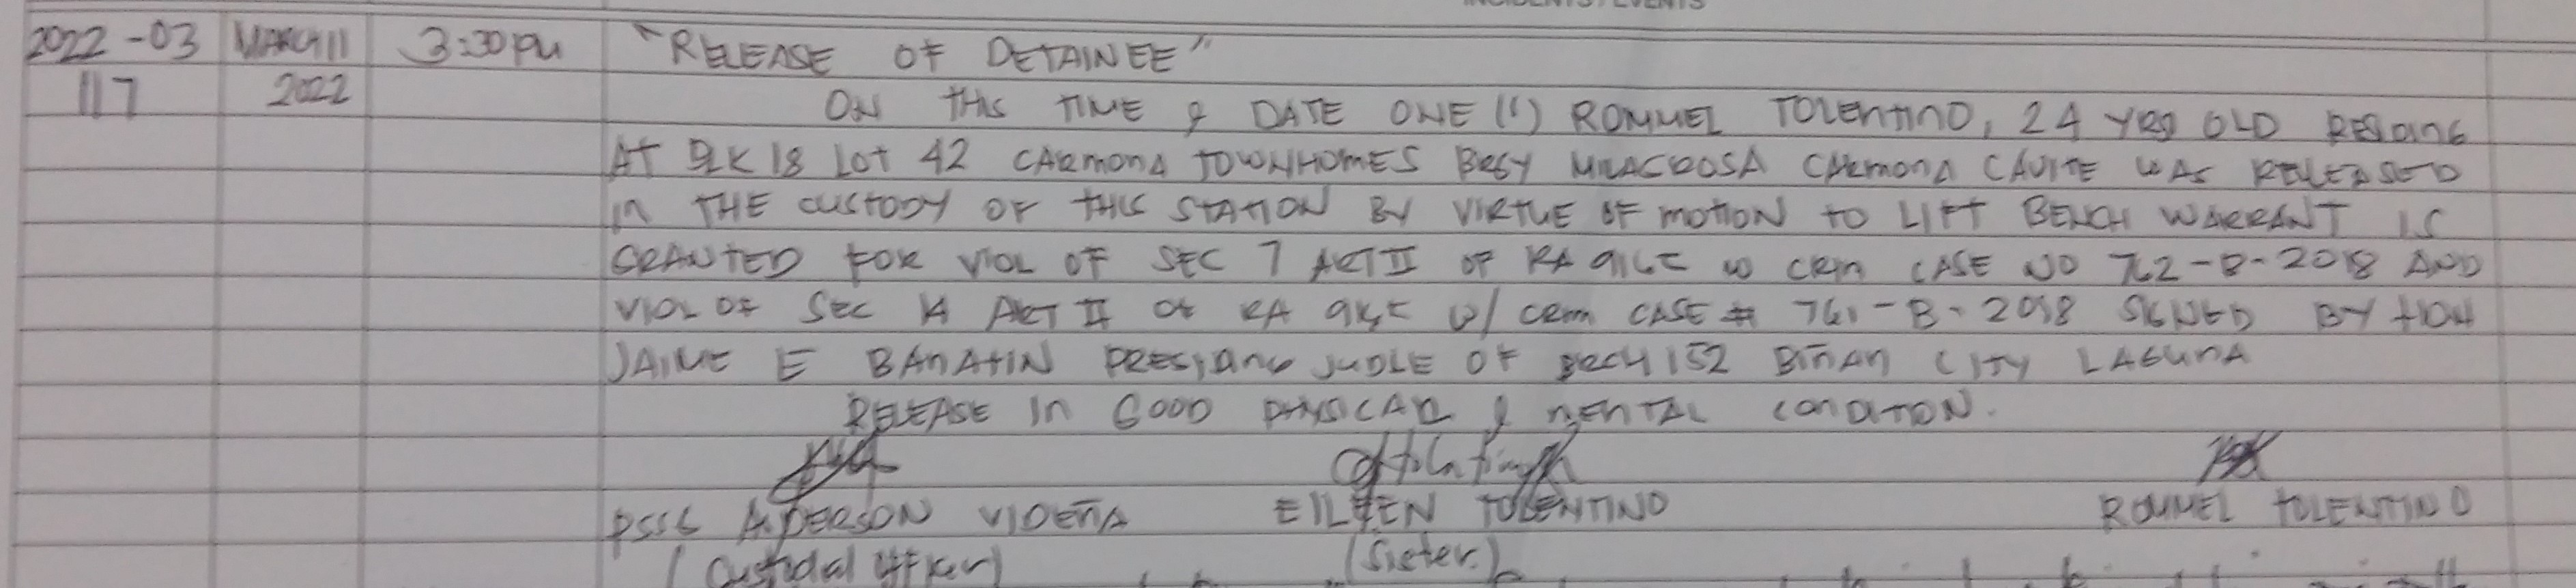 INCIDENTS / EVENTS
2022-03 MARCH 11 3:30 PM "RELEASE OF DETAINEE"
117 2022 ON THIS TIME & DATE ONE (1) ROMMEL TOLENTINO, 24 YRS OLD RESIDING
AT BLK 18 LOT 42 CARMONA TOWNHOMES BRGY MILAGROSA CARMONA CAVITE WAS RELEASED
IN THE CUSTODY OF THIS STATION BY VIRTUE OF MOTION TO LIFT BENCH WARRANT IS
GRANTED FOR VIOL OF SEC 7 ART II OF RA 9165 W CRIM CASE NO 762-B-2018 AND
VIOL OF SEC 14 ART II OF RA 9165 W/ CRIM CASE # 761-B-2018 SIGNED BY HON
JAIME E BANATIN PRESIDING JUDGE OF BRCH 152 BIÑAN CITY LAGUNA
RELEASE IN GOOD PHYSICAL & MENTAL CONDITION.
PSSG ANDERSON VIDEÑA EILEEN TOLENTINO ROMMEL TOLENTINO
(Custodial Officer) (Sister)